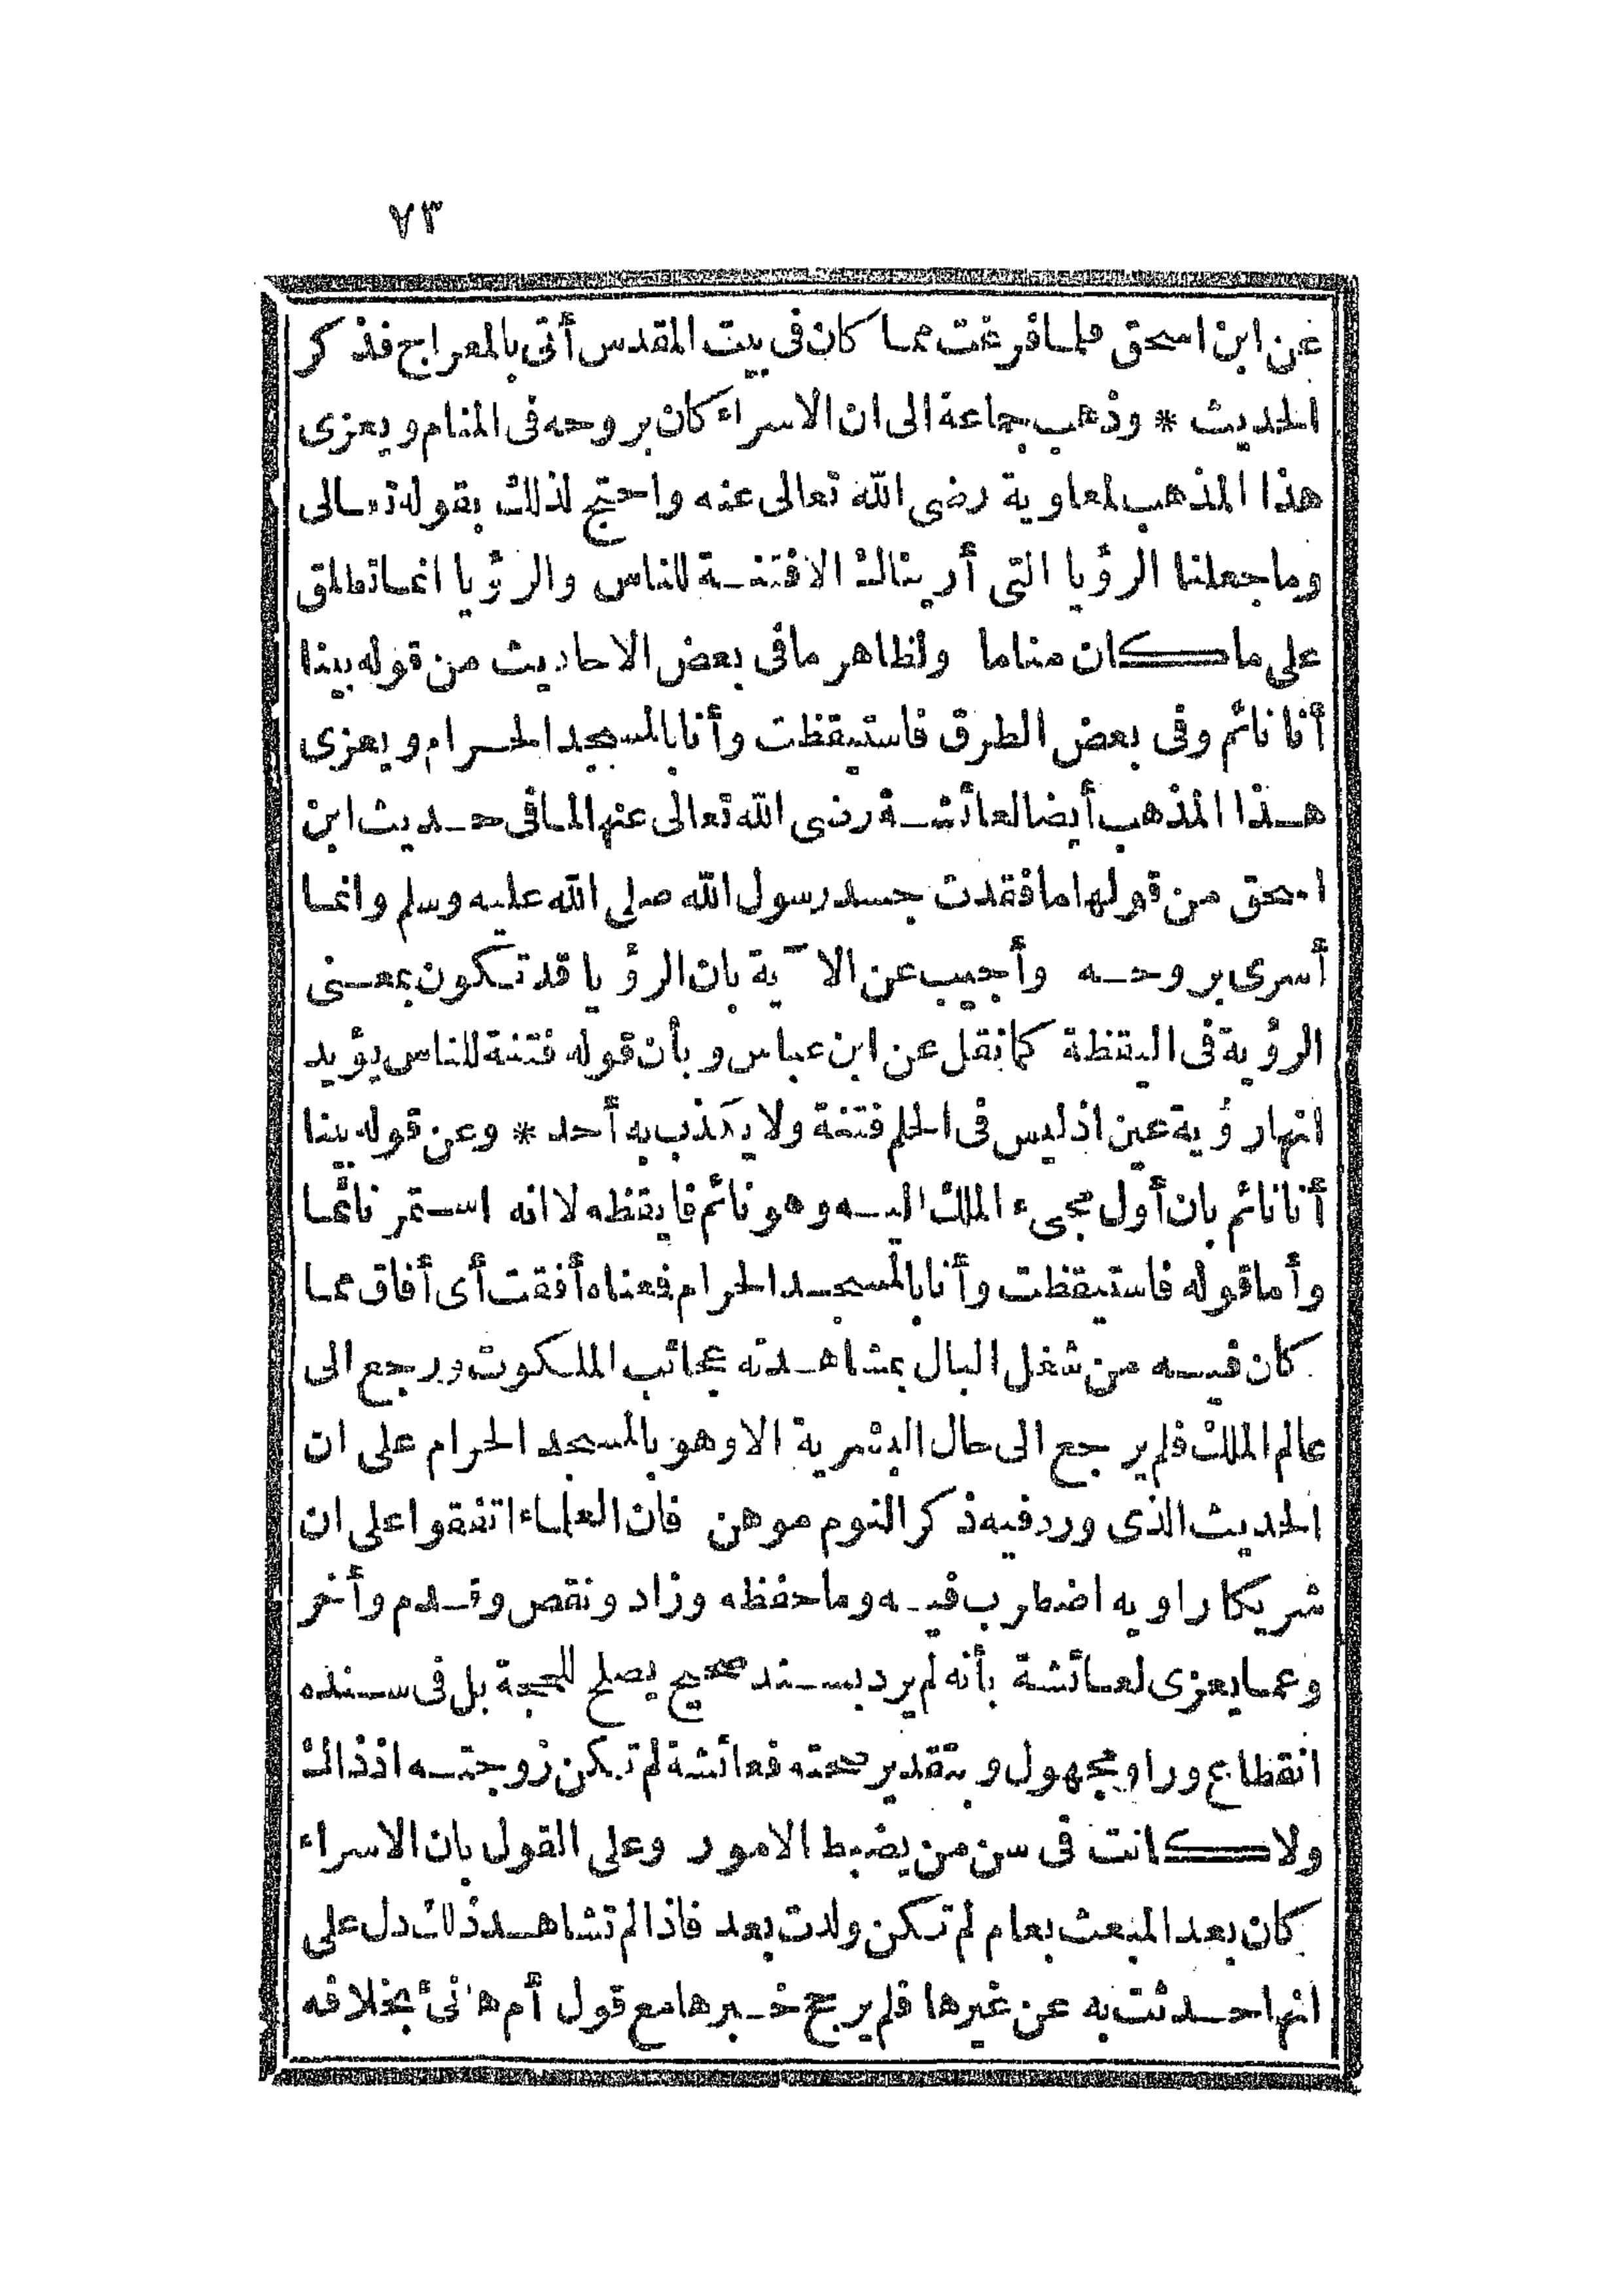 ٧٣
عن ابن اسحق فلما فرغت مما كان فى بيت المقدس أتى بالمعراج فذكر
الحديث * وذهب جماعة الى ان الاسراء كان بروحه فى المنام ويعزى
هذا المذهب لمعاوية رضى الله تعالى عنه واحتج لذلك بقوله تعالى
وما جعلنا الرؤيا التى أريناك الا فتنة للناس والرؤيا انما تطلق
على ما كان مناما ولظاهر ما فى بعض الاحاديث من قوله بينا
أنا نائم وفى بعض الطرق فاستيقظت وأنا بالمسجد الحرام ويعزى
هذا المذهب أيضا لعائشة رضى الله تعالى عنها لما فى حديث ابن
اسحق من قولها ما فقدت جسد رسول الله صلى الله عليه وسلم وانما
أسرى بروحه وأجيب عن الآية بان الرؤيا قد تكون بمعنى
الرؤية فى اليقظة كما نقل عن ابن عباس وبأن قوله فتنة للناس يؤيد
انها رؤية عين اذ ليس فى الحلم فتنة ولا يكذب به أحد * وعن قوله بينا
أنا نائم بان أول مجىء الملك اليه وهو نائم فايقظه لا انه استمر نائما
وأما قوله فاستيقظت وأنا بالمسجد الحرام فمعناه أفقت أى أفاق مما
كان فيه من شغل البال بمشاهدته عجائب الملكوت ورجع الى
عالم الملك فلم يرجع الى حال البشرية الا وهو بالمسجد الحرام على ان
الحديث الذى ورد فيه ذكر النوم موهن فان العلماء اتفقوا على ان
شريكا راويه اضطرب فيه وما حفظه وزاد ونقص وقدم وأخر
وعما يعزى لعائشة بأنه لم يرد بسند صحيح يصلح للحجة بل فى سنده
انقطاع وراو مجهول وبتقدير صحته فعائشة لم تكن زوجته اذ ذاك
ولا كانت فى سن من يضبط الامور وعلى القول بان الاسراء
كان بعد المبعث بعام لم تكن ولدت بعد فاذا لم تشاهد ذلك دل على
انها حدثت به عن غيرها فلم يرجح خبرها مع قول أم هانئ بخلافه